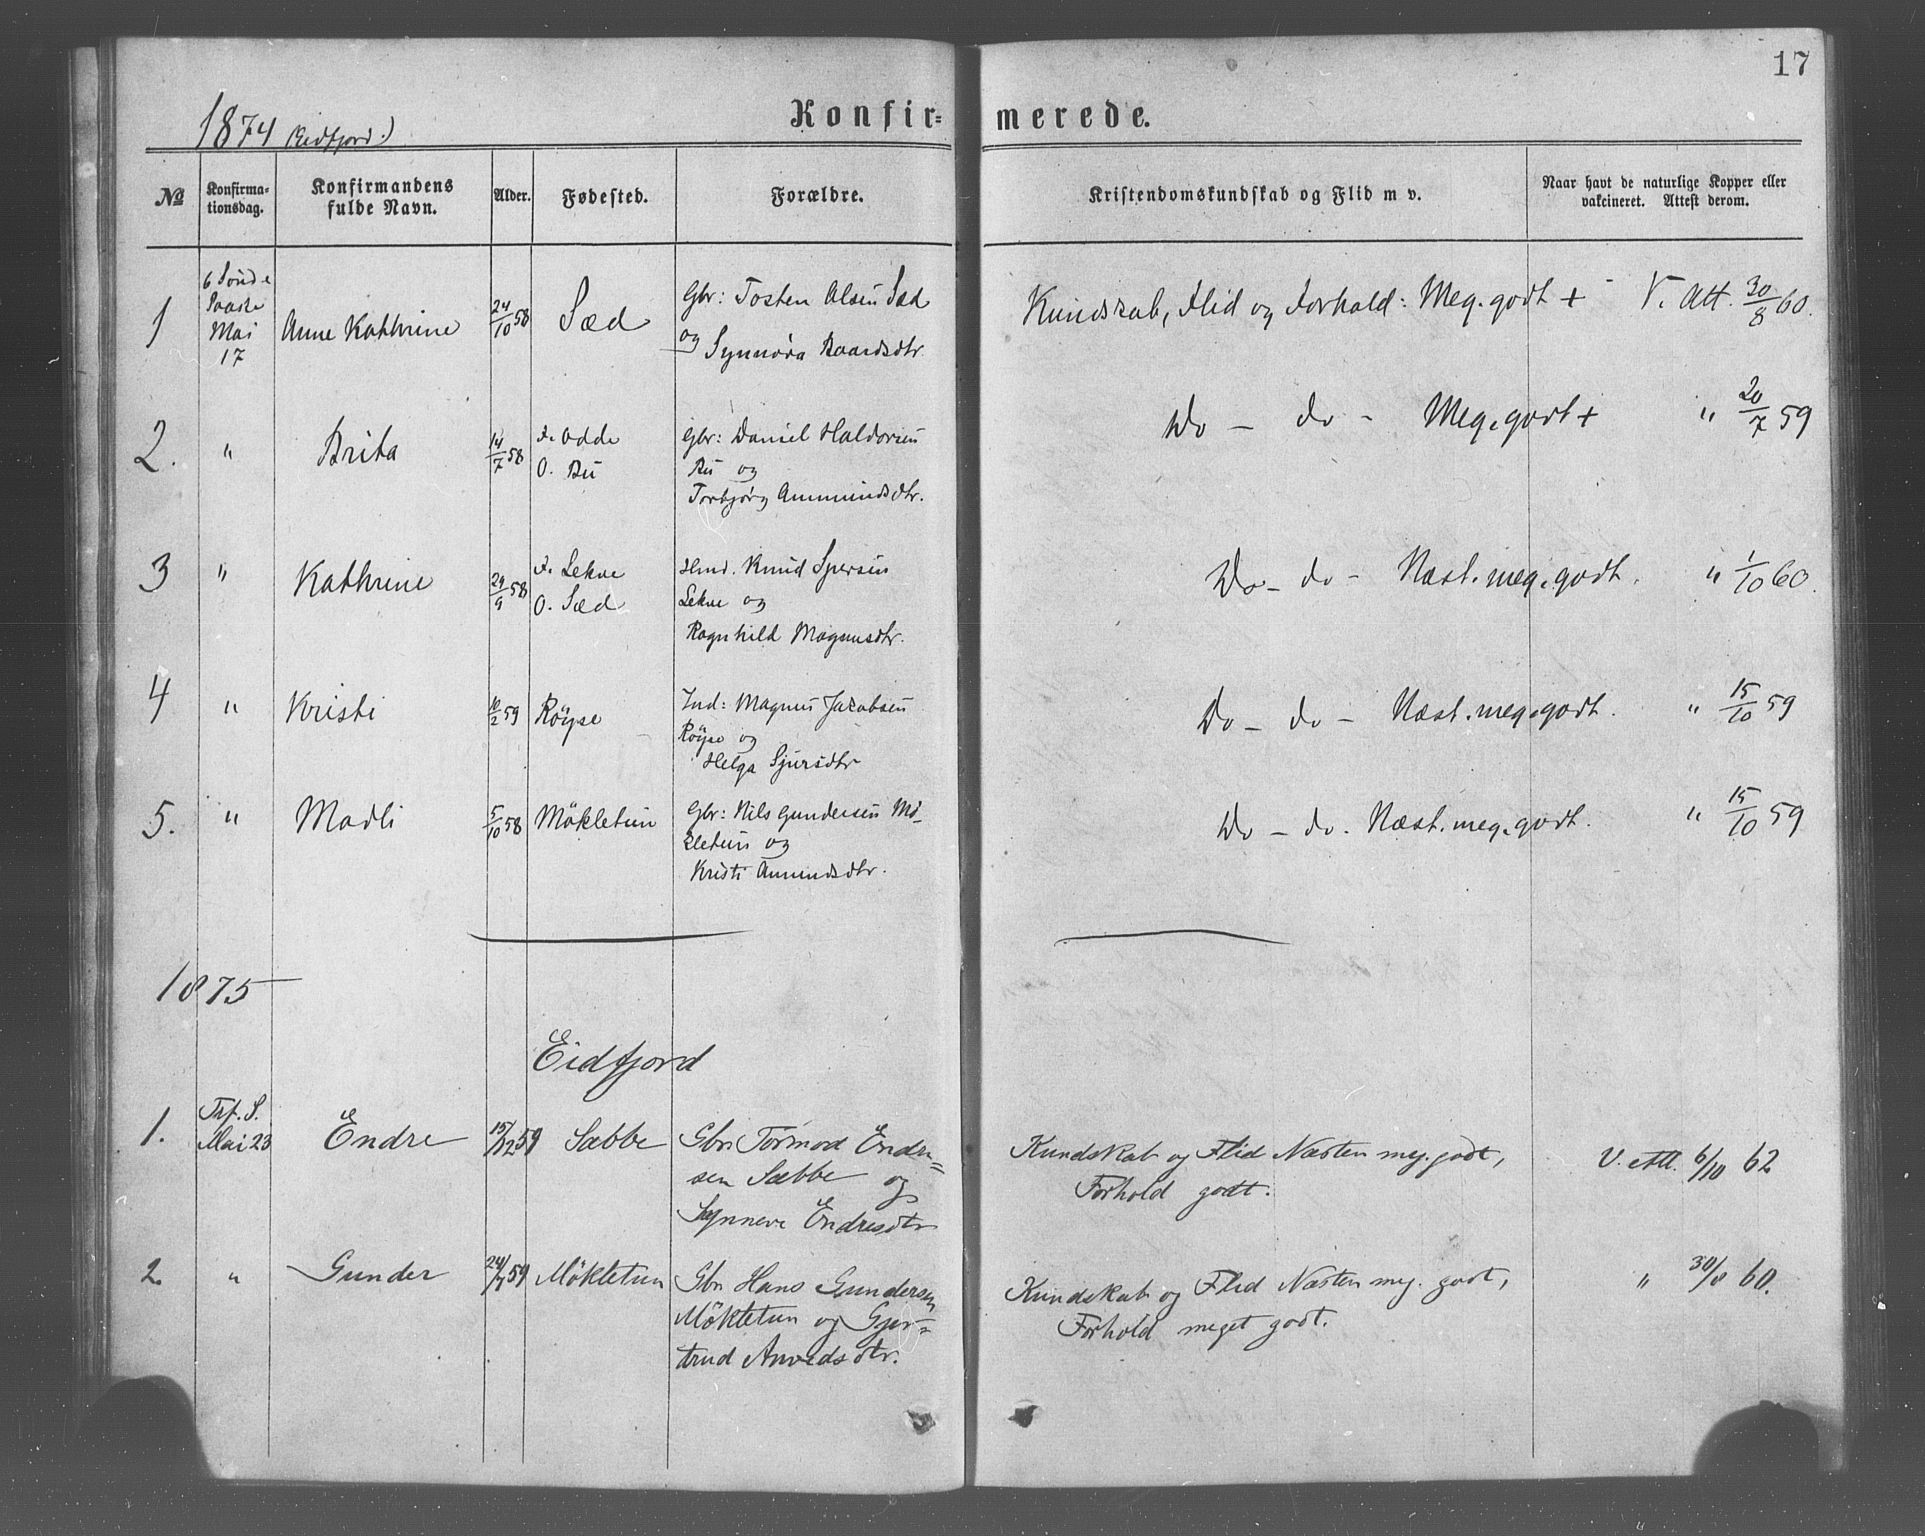 17
1874 (Eidfjord.)
Konfir= merede.
№ Konfirma-tionsdag. Konfirmandens fulde Navn. Alder. Fødested. Forældre. Kristendomskundskab og Flid m v. Naar havt de naturlige Kopper eller vakcineret. Attest derom.
1 6 Sønd e Paaske Mai 17 Anne Kathrine 24/10 58 Sæd Gbr: Tosten Olsen Sæd
og Synnøva Baardsdtr. Kundskab, Flid og Forhold: Meg. godt + V. Att. 30/8 60.
2. " Brita 14/7 58 F. Odde O. Bu Gbr: Daniel Haldorsen
Bu og
Torbjørg Ammundsdtr. Do – do – Meg. godt + " 20/7 59
3 " Kathrine 29/9 58 F. Lekve O. Sæd Hmd. Knud Sjursen
Lekve og
Ragnhild Magnusdtr. Do – do – Næst. meg. godt. " 1/10 60.
4 " Kristi 10/2 59 Røyse Ind: Magnus Jakobsen
Røyse og
Helga Sjursdtr Do – do – Næst. meg. godt. " 15/10 59
5. " Madli 5/10 58 Møkletun Gbr: Nils Gundersen Mø-
kletun og
Kristi Amundsdtr. Do – do. Næst. meg. godt. " 15/10 59
1875
Eidfjord
1. Trf. S. Mai 23 Endre 15/12 59 Sæbbe Gbr. Tormod Endre=
sen Sæbbe og
Synneve Endresdtr Kundskab og Flid Næsten meg. godt,
Forhold godt. V. Att. 6/10 62
2. " Gunder 24/7 59 Møkletun Gbr. Hans Gundersen
Møkletun og Gjer=
trud Anvedsdtr. Kundskab og Flid Næsten meg. godt,
Forhold meget godt. " 30/8 60.